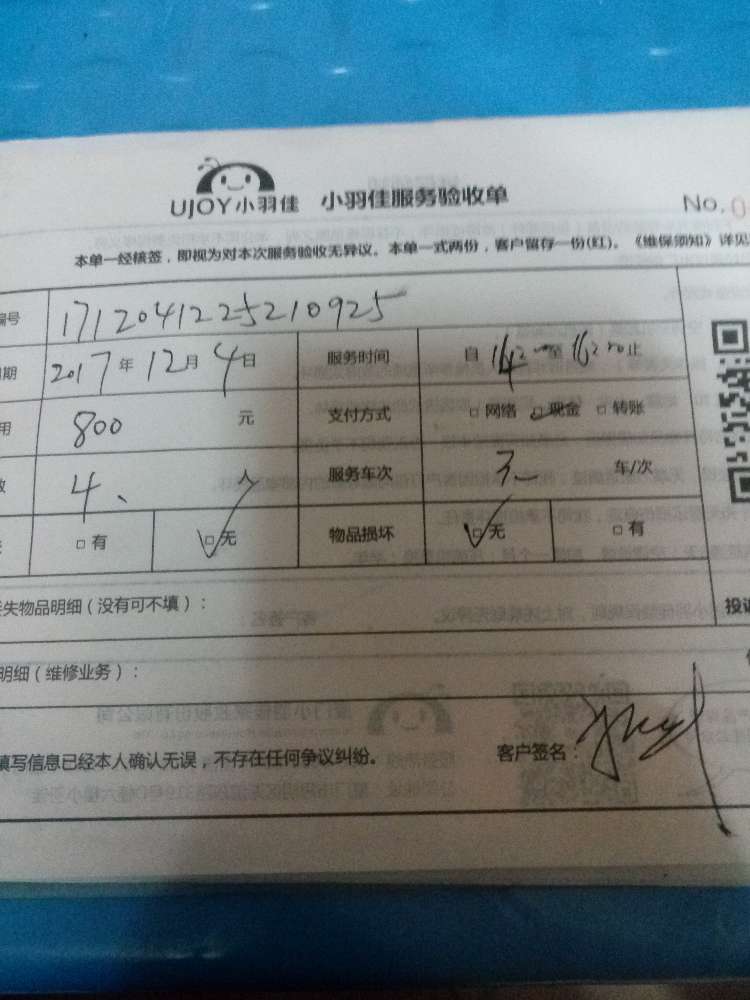 UJOY小羽佳 小羽佳服务验收单
No. 0
本单一经核签，即视为对本次服务验收无异议。本单一式两份，客户留存一份(红)。《维保须知》详见
编号 1712041225210925
期 2017年12月4日 服务时间 自 14 20 至 16 20 止
用 800 元 支付方式 □网络 □现金 □转账
数 4、 人 服务车次 3 车/次
□有 □无 物品损坏 □无 □有
失物品明细（没有可不填）：
投诉
明细（维修业务）：
填写信息已经本人确认无误，不存在任何争议纠纷。 客户签名：